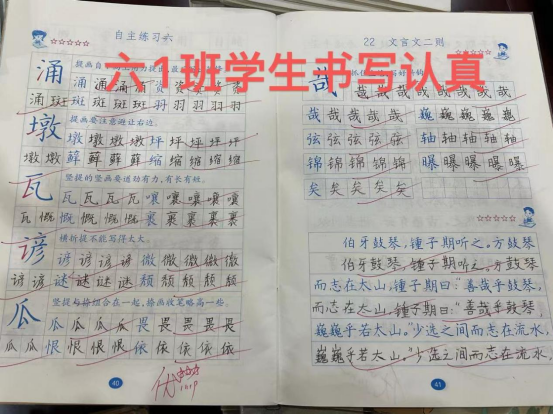 自主练习六
六1班学生书写认真
涌 涌 涌 涌 涌 资 资 资 资
涌 斑 斑 斑 斑 斑 羽 羽 羽 羽 羽
提画要注意避让右边。
墩 墩 墩 墩 墩 坪 坪 坪 坪
墩 鲜 鲜 鲜 鲜 缩 缩 缩 缩 缩
竖提的竖画要道劲有力,有长有短。
瓦 瓦 瓦 瓦 瓦 嚷 嚷 嚷 嚷 嚷
瓦 慨 慨 慨 慨 慨 裹 裹 裹 裹 裹
横折提不能写得太大。
谚 谚 谚 谚 谚 微 微 微 微 微
谚 谚 谜 谜 谜 谜 颓 颓 颓 颓 颓
竖提与捺组合在一起,捺画收笔略高一些。
瓜 瓜 瓜 瓜 瓜 畏 畏 畏 畏
瓜 瓜 恨 恨 恨 恨 依 依 依 依 依
优
40
22 文言文二则
哉 哉 哉 哉 哉 哉 哉 哉
哉 哉 哉 哉 哉 巍 巍 巍 巍 巍
弦 弦 弦 弦 弦 轴 轴 轴 轴 轴
锦 锦 锦 锦 锦 曝 曝 曝 曝 曝
矣 矣 矣 矣 矣
伯牙鼓琴,锺子期听之。方鼓琴
伯牙鼓琴,锺子期听之。方鼓琴
而志在太山,锺子期曰:“善哉乎鼓琴,
而志在太山,锺子期曰:“善哉乎鼓琴,
巍巍乎若太山。”少选之间而志在流水,
巍巍乎若太山。”少选之间而志在流水,
41